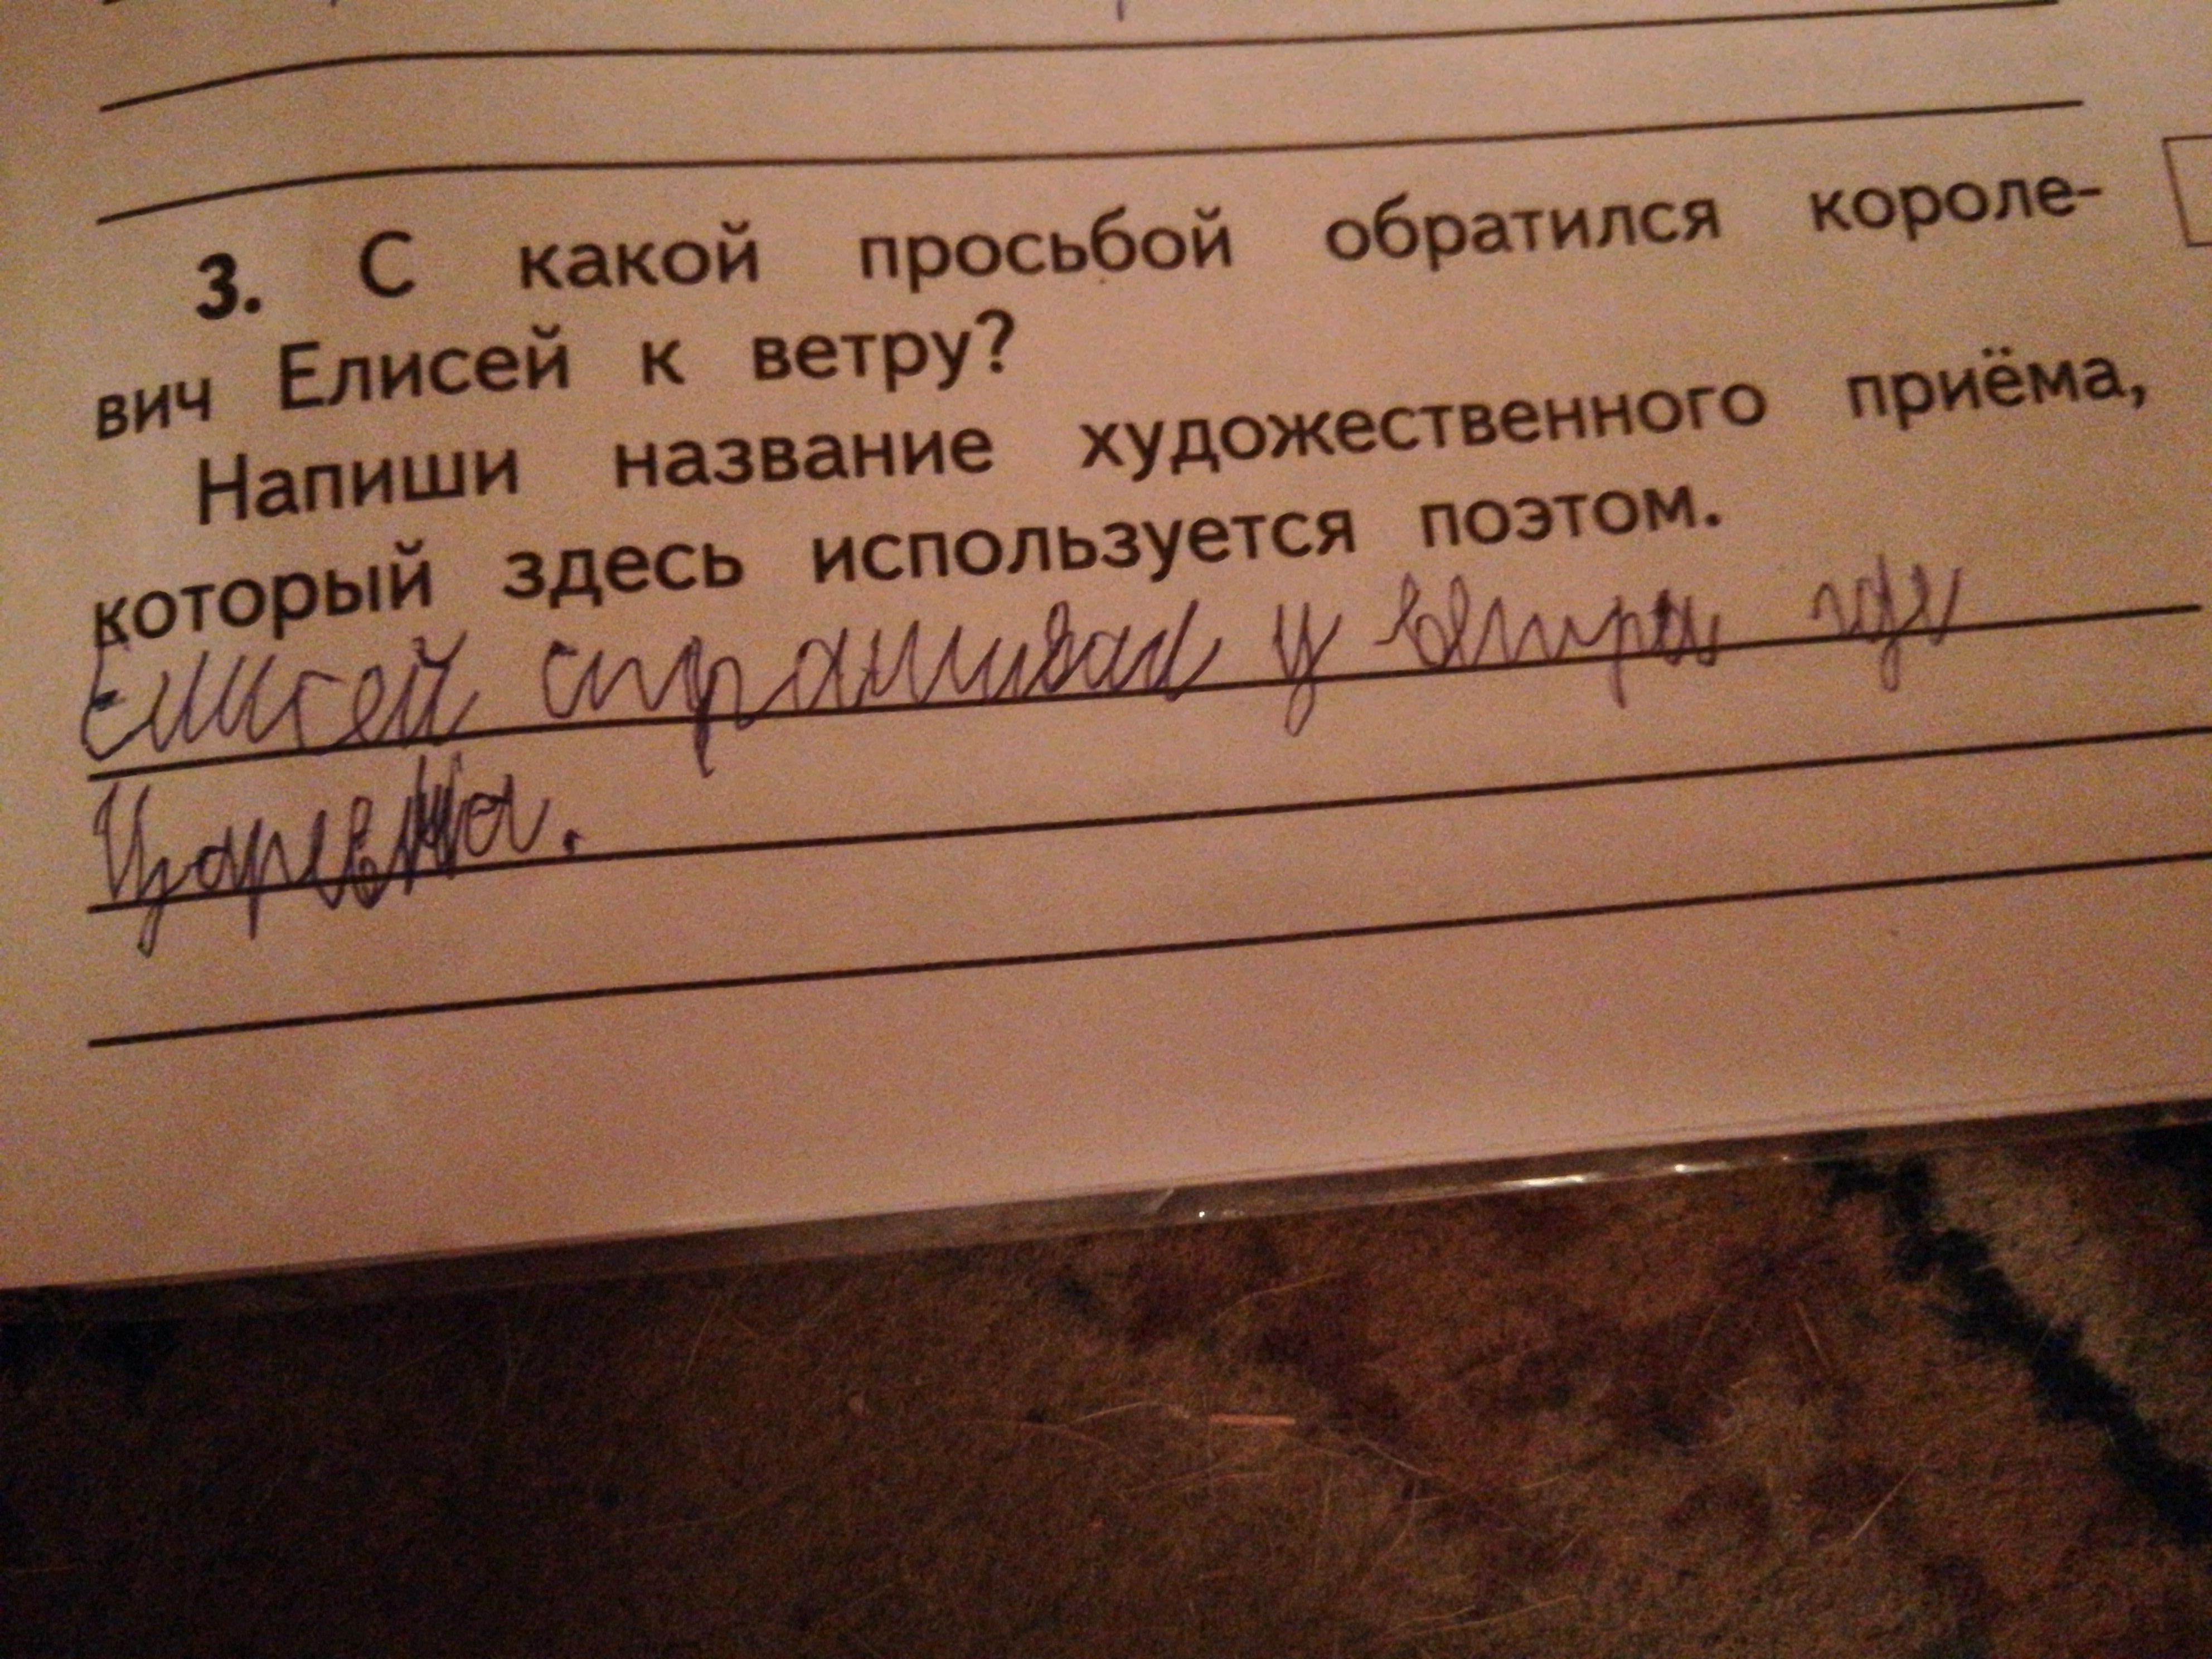 3. С какой просьбой обратился короле-
вич Елисей к ветру?
Напиши название художественного приёма,
который здесь используется поэтом.
Елисей спрашивал у ветра где
Царевна.